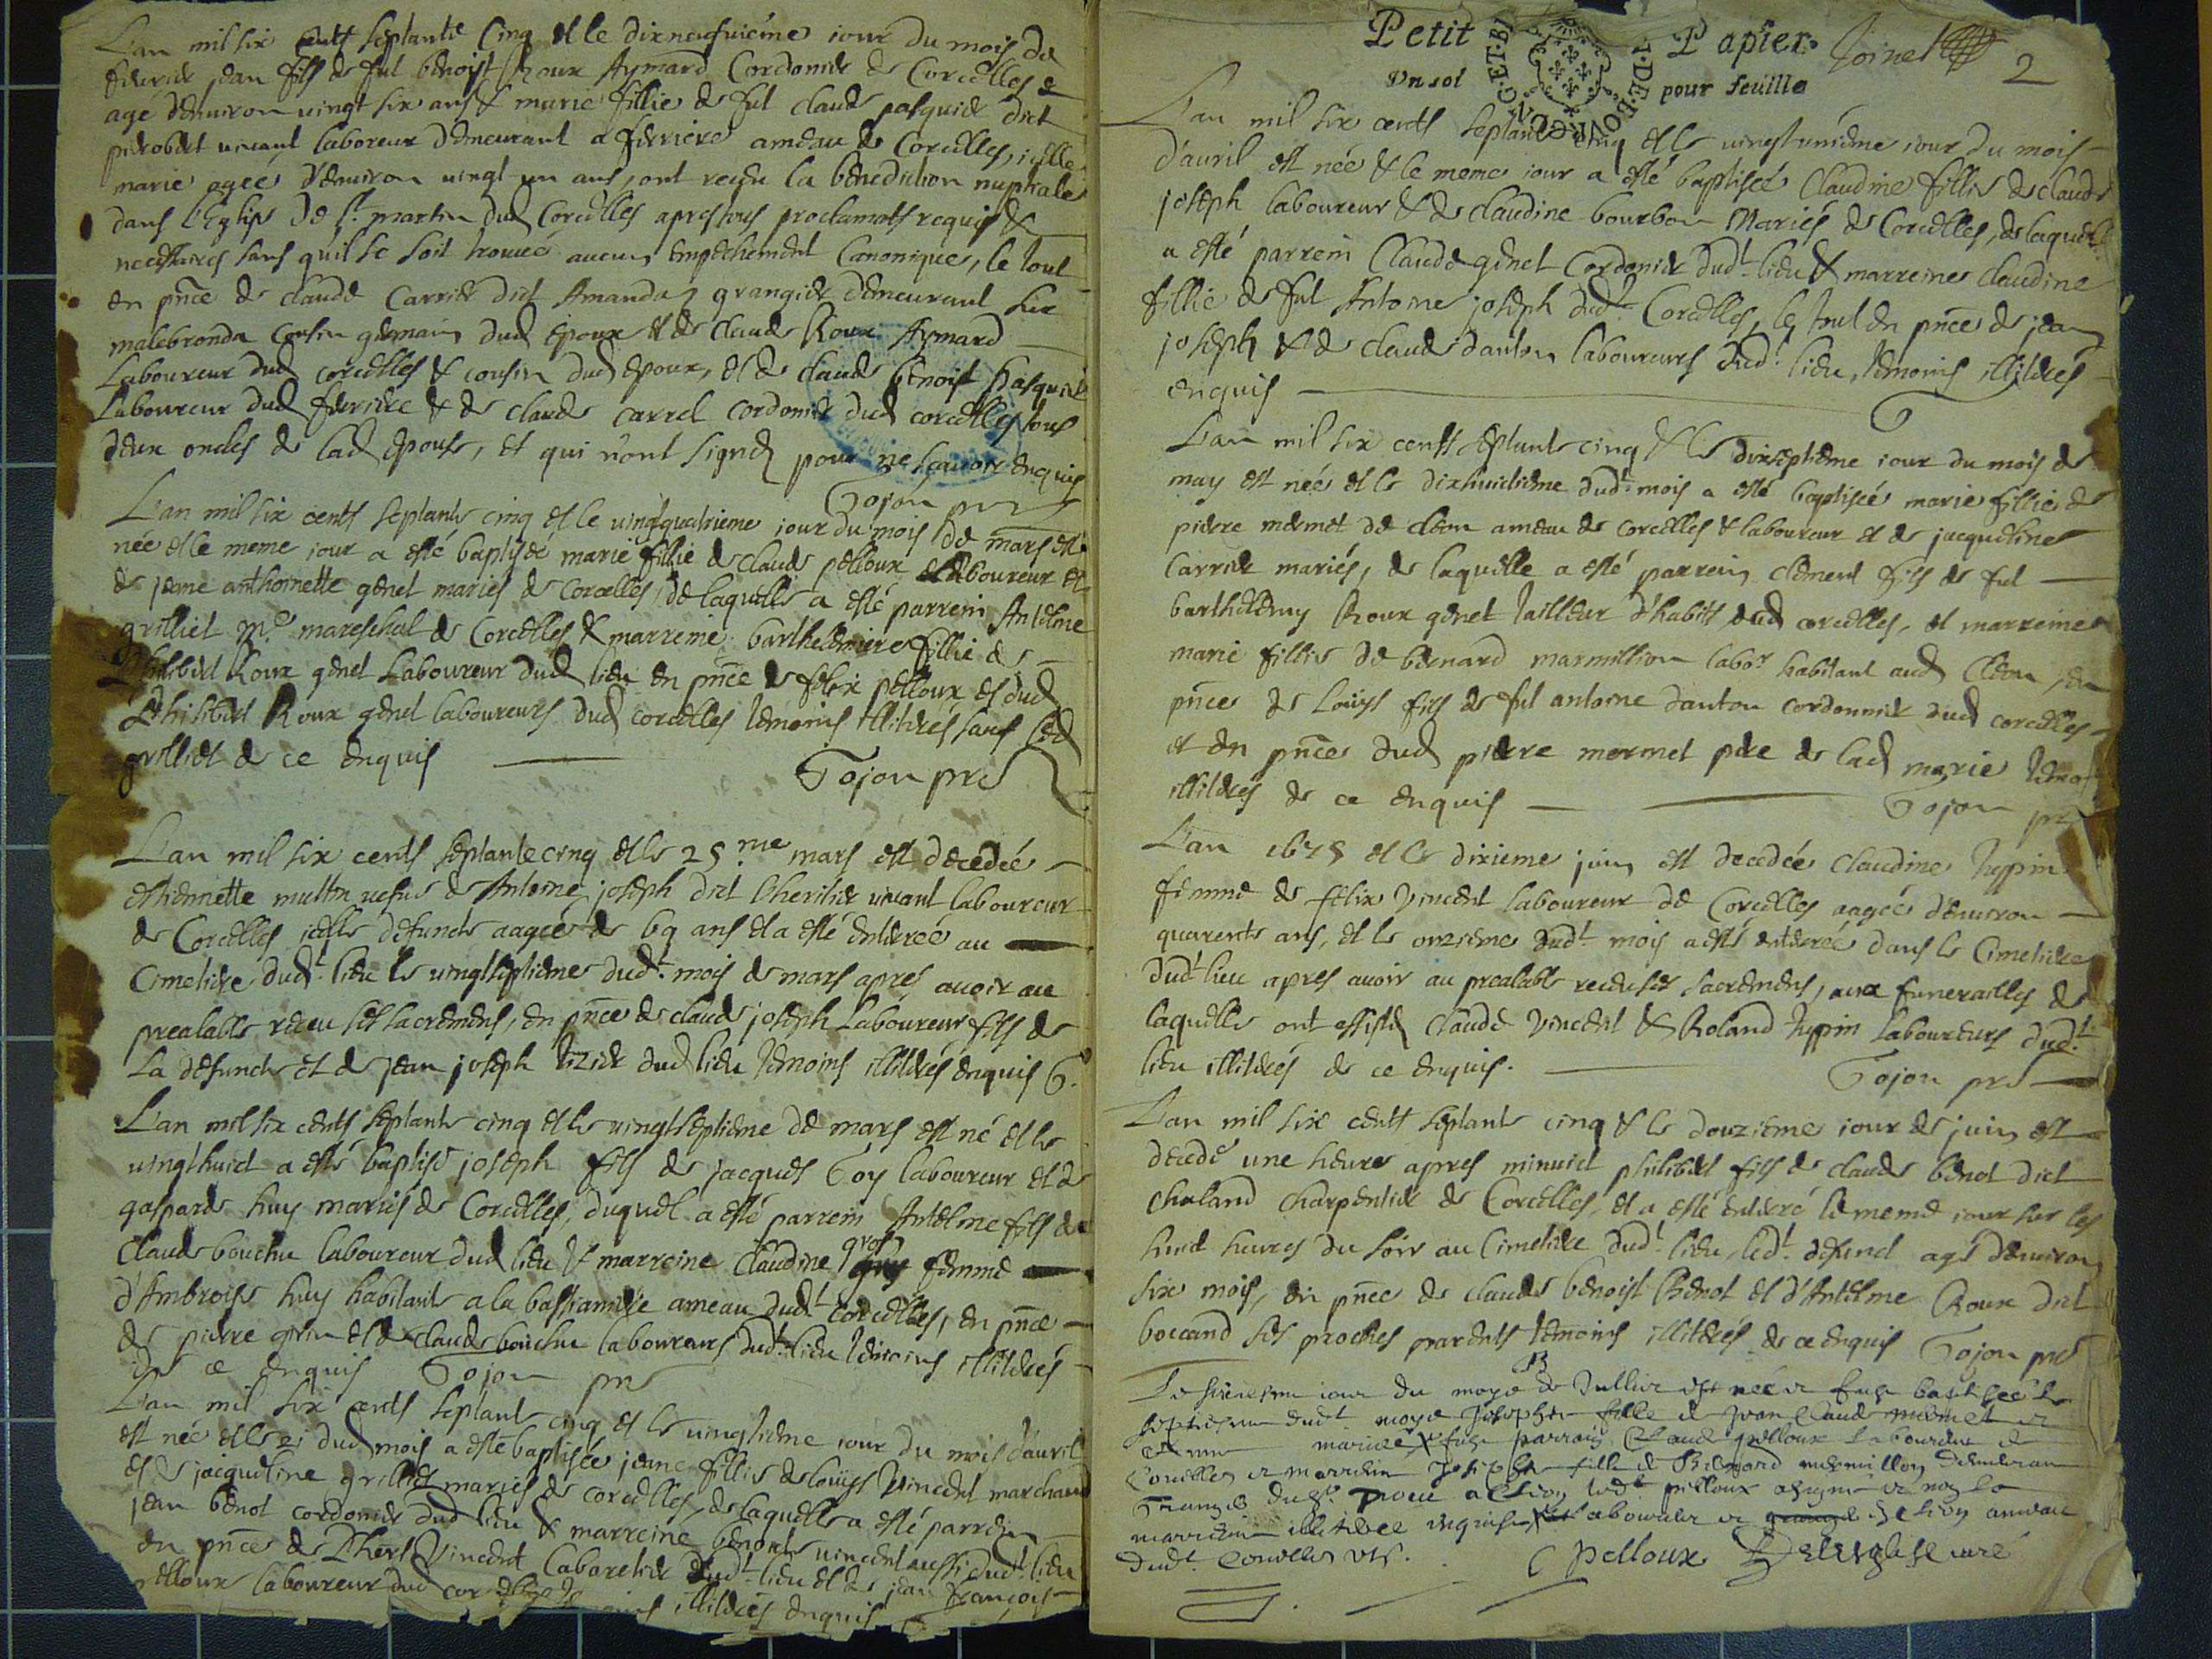 L'an mil six cents septante cinq et le dix neufuiéme iour du mois de
feburier jean fils de fut benoist Roux Aymard Cordonier de Corcelles
age d'enuiron uingt six ans & marie fillie de fut claude pasquier dict
pierobert uiuant laboreur demeurant a ferriere ameau de Corcelles, icelle
marie agée d'enuiron uingt un ans, ont reçeu la benediction nuptiale
dans l'Eglise de St martin dud Corcelles apres tous proclamats requis &
necessaires sans quil se soit trouué aucun empechement Canonique, le tout
en pnce de claude Carrier dict Amanda grangier demeurant sur
malebronda cousin germain dud epoux & de claude Roux Aymard
Laboureur dud corcelles & cousin dud epoux, et de claude benoist pasquier
Laboureur dud ferriere & de claude carrel cordonier dud corcelles tous
deux oncles de lad epouse, et qui n'ont signé pour ne scauoir enquis
Gojon pre
L'an mil six cents septante cinq et le uingtquatrieme iour du mois de mars est
née et le meme iour a esté baptisée marie fillie de claude pelloux laboureur et
de jeane anthoinette genet mariés de Corcelles, de laquelle a esté parrein Antelme
grilliet me mareschal de Corcelles & marreine barthelemiere fillie de
Philibert Roux genet Laboureur dud lieu en pnce de felix pelloux et dud
Philibert Roux genet laboureurs dud corcelles temoins illitérés sauf led
grilliet de ce enquis
Gojon pre
L'an mil six cents septante cinq et le 25.me mars est decedée
estiennette multin uefue de Antoine joseph dict l'heritier uiuant laboureur
de Corcelles icelle defuncte aagée de 69 ans et a esté enterrée au
Cimetiere dudt lieu le uingtseptieme dudt mois de mars apres auoir au
prealable receu ses sacrements, en pnce de claude joseph Laboureur fils de
La defuncte et de jean joseph tizier dud lieu temoins illitérés enquis G.
L'an mil six cents septante cinq et le uingtseptieme de mars est né et le
uingthuict a esté baptisé joseph fils de jacques Goy laboureur et de
gasparde huy mariés de Corcelles, duquel a esté parrein Antelme fils de
Claude bouchu laboureur dud lieu & marreine Claudine gros femme
d'Ambroise huy habitante a la bassiamiere ameau dudt corcelles, en pnce
de pierre grim et de claude bouchu laboureurs dudt lieu temoins illitérés
de ce enquis Gojon pre
L'an mil six cents septante cinq et le uingtieme iour du mois d'auril
est née et le 21 dud mois a esté baptisée jeane fillie de loüys Vincent marchand
et de jacqueline grilliet mariés de corcelles, de laquelle a esté parrein
jean benot cordonier dud lieu & marreine benoite uincent aussi dudt lieu
en pnce de Phert Vincent Cabaretier dudt lieu et de jean françois
pelloux laboureur dud illitérés enquis
Petit Papier
Un sol pour feuille
Joinet
2
L'an mil six cents septante cinq et le uingtunieme iour du mois
d'auril est née & le meme iour a esté baptisée Claudine fillie de claude
joseph laboureur & de claudine bourbon Mariés de Corcelles, de laquelle
a esté parrein Claude genet Cordonier dudt lieu & marreine claudine
fillie de fut Antoine joseph dudt Corcelles, le tout en pnce de jean
joseph & de claude danton laboureurs dudt lieu, temoins illitérés
enquis
G
L'an mil six cents septante cinq & le dixseptieme iour du mois de
may est née et le dixhuictieme dudt mois a esté baptisée marie fillie de
pierre mermet de cleon ameau de corcelles & laboureur et de jacqueline
Carrier mariés, de laquelle a esté parrein clement fils de fut
barthelemy Roux genet tailleur d'habits dud corcelles, et marreine
marie fillie de bernard marmillion labor habitant aud Cleon, en
pnce de Loüys fils de fut antoine danton cordonnier dud corcelles
et en pnce dud pierre mermet pere de lad marie temo
illitérés de ce enquis
Gojon pre
L'an 1675 et le dixieme juin est decedée Claudine Juppin
femme de felix Vincent laboureur de Corcelles aagée d'enuiron
quarente ans, et le onzieme dudt mois a esté enterrée dans le Cimetiere
dudt lieu apres auoir au prealable receu ses sacrements, aux funerailles de
laquelle ont assisté Claude Vincent & Roland Juppin laboureurs dudt
lieu illitérés de ce enquis.
Gojon pre
L'an mil six cents septante cinq & le douzieme iour de juin est
decedé une heure apres minuict philibert fils de claude benot dict
chaland charpentier de Corcelles, et a esté enterré le meme iour sur les
huict heures du soir au Cimetiere dudt lieu, ledt defunct agé d'enuiron
six mois, en pnce de claude benoist Benot et d'Antelme Roux dict
boccand ses proches parents temoins illitérés de ce enquis Gojon pre
Le sixiesme iour du moys de Jullier est née et fust baptisee le
septiesme dudt moys Josephe fille de Jean Claude mermet et
mariés, & fust parrain Claude pelloux Laboureur de
Corcelles et marreine Josephe fille de Bernard mermillon demeurant
a Cleon ledt pelloux a signé et non la
marreine illiteree enquise laboureur et de Cleon ameau
dudt Corcelles
C pelloux Deleglise curé